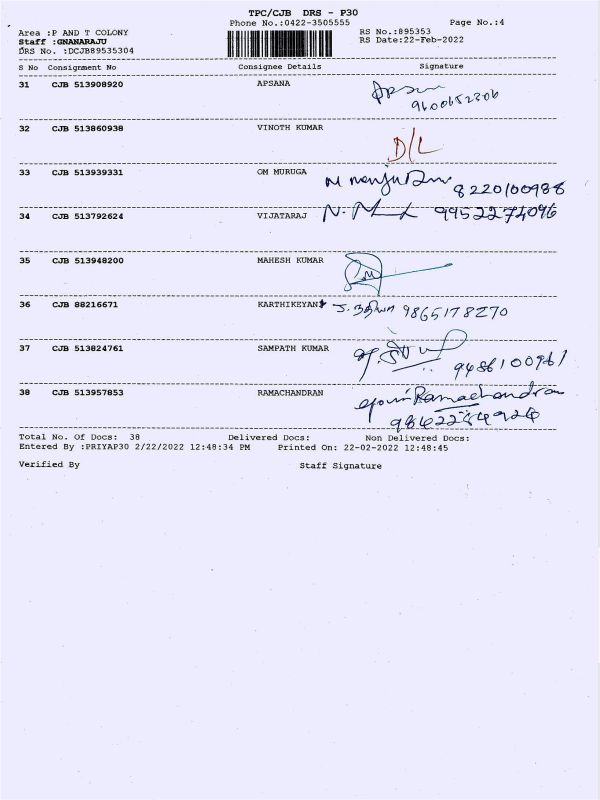 TPC/CJB DRS - P30
Phone No.:0422-3505555 Page No.:4
Area :P AND T COLONY RS No.:895353
Staff :GNANARAJU RS Date:22-Feb-2022
DRS No. :DCJB89535304
S No Consignment No Consignee Details Signature
31 CJB 513908920 APSANA
9600652306
32 CJB 513860938 VINOTH KUMAR
D/L
33 CJB 513939331 OM MURUGA
8220100988
34 CJB 513792624 VIJATARAJ 9952274096
35 CJB 513948200 MAHESH KUMAR
36 CJB 88216671 KARTHIKEYAN 9865178270
37 CJB 513824761 SAMPATH KUMAR
9486100961
38 CJB 513957853 RAMACHANDRAN Ramachandran
Total No. Of Docs: 38 Delivered Docs: Non Delivered Docs:
Entered By :PRIYAP30 2/22/2022 12:48:34 PM Printed On: 22-02-2022 12:48:45
Verified By Staff Signature